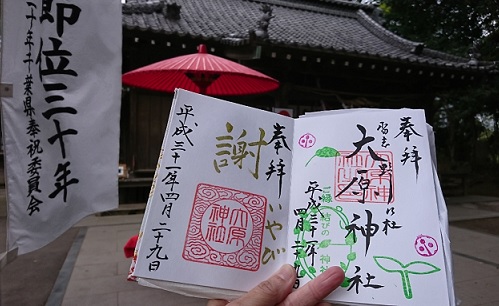 即位三十年
千葉県奉祝委員会
奉拝
大原神社
平成三十一年四月二十九日
ご縁結びの神社
奉拝
謝
いやび
平成三十一年四月二十九日
大原神社